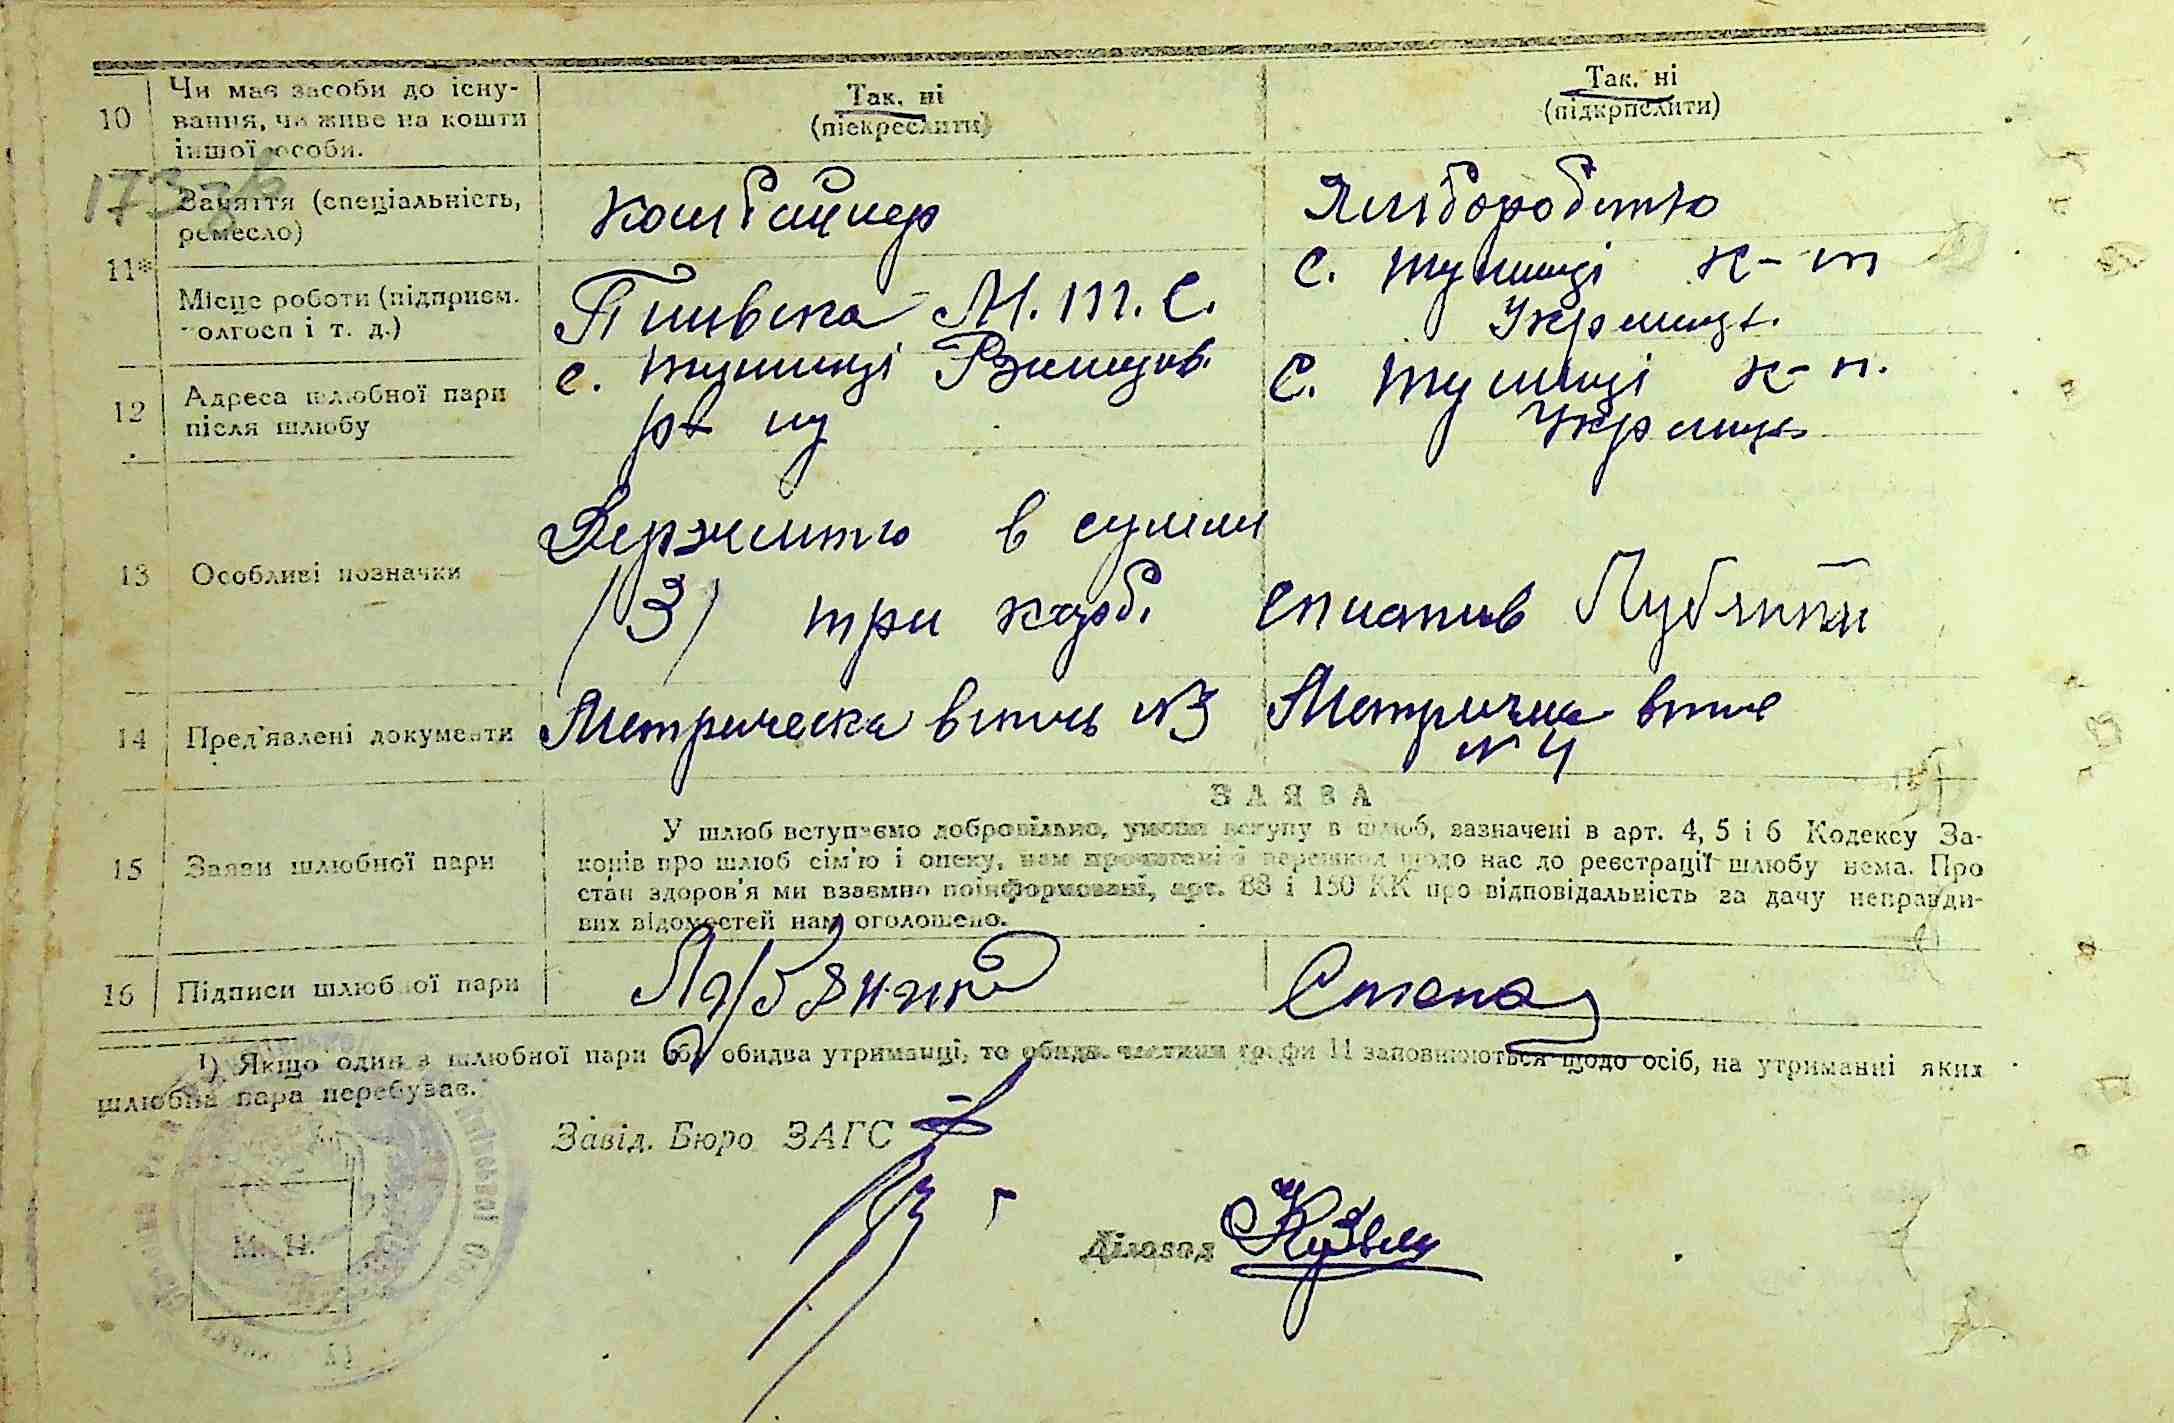 10
Чи має засоби до існу-
вання, чи живе на кошти
іншої особи.
Так. ні
(підкреслити)
Так. ні
(підкрпслити)
173
11*
Заняття (спеціальність,
ремесло)
Комбайнер
Хліборобство
Місце роботи (підприєм.
колгосп і т. д.)
М. Т. С.
с. Тулинці к-п
12
Адреса шлюбної пари
після шлюбу
с. Тулинці Ржищів.
р-ну
С. Тулинці к-п.
13
Особливі позначки
Держмито в сумми
(3) три карб. сплатив Луб'яний
14
Пред'явлені документи
Метрическа випись №3
Метрична випис
№ 4
15
Заяви шлюбної пари
ЗАЯВА
У шлюб вступаємо добровільно, умови вступу в шлюб, зазначені в арт. 4, 5 і 6 Кодексу За-
конів про шлюб сім'ю і опеку, нам прочитані і перешкод щодо нас до реєстрації шлюбу нема. Про
стан здоров'я ми взаємно поінформовані, арт. 88 і 150 КК про відповідальність за дачу неправди-
вих відомостей нам оголошено.
16
Підписи шлюбної пари
¹) Якщо один з шлюбної пари або обидва утриманці, то обидві частини графи 11 заповнюються щодо осіб, на утриманні яких
шлюбна пара перебуває.
Завід. Бюро ЗАГС
М. П.
Діловод